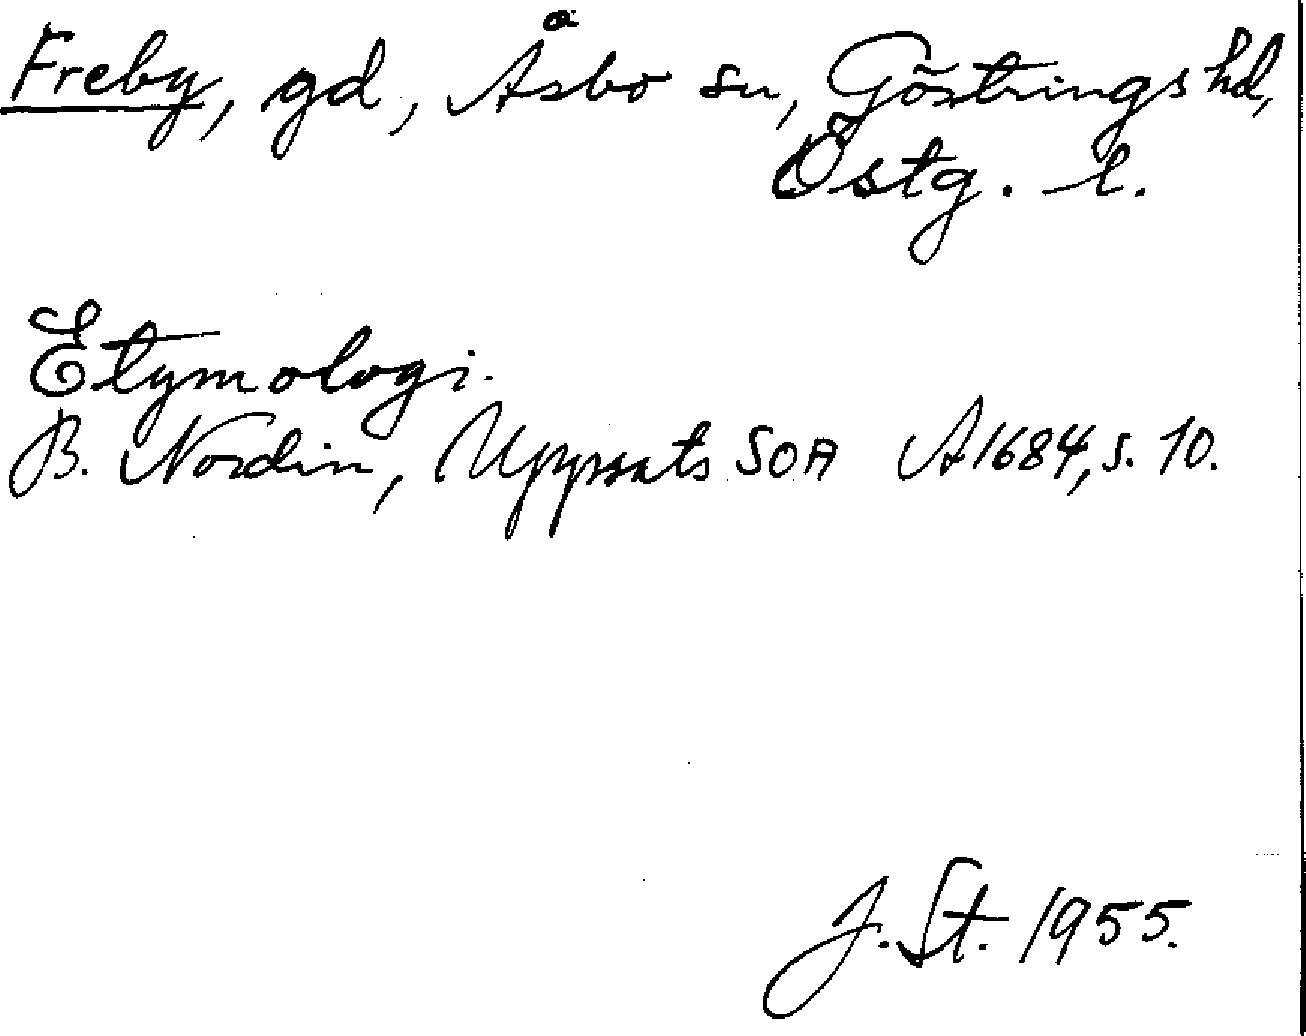 Freby, gd, Åsbo sn, Göstrings hd,
Östg. l.
Etymologi.
B. Nordin, Uppsats SOA A1684, s. 10.
J. St. 1955.